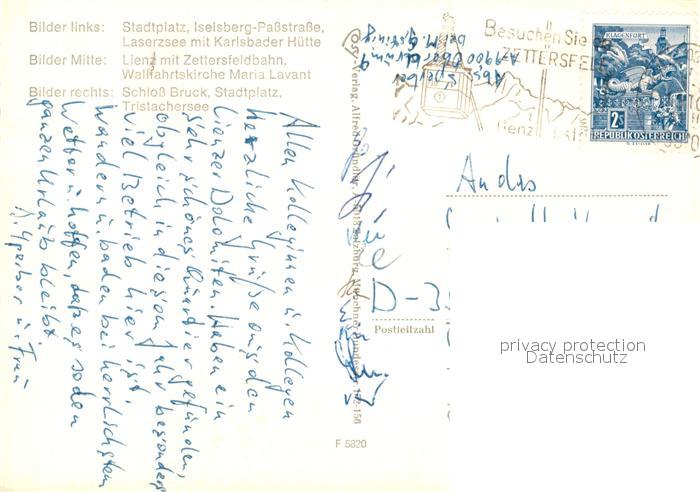 Bilder links: Stadtplatz, Iselsberg-Paßstraße,
Laserzsee mit Karlsbader Hütte
Bilder Mitte: Lienz mit Zettersfeldbahn,
Wallfahrtskirche Maria Lavant
Bilder rechts: Schloß Bruck, Stadtplatz,
Tristachersee
Allen Kolleginnen u. Kollegen
herzliche Grüße aus den
Lienzer Dolomiten. Haben ein
sehr schönes Quartier gefunden,
obgleich in diesem Jahr besonders
viel Betrieb hier ist.
Wandern u. baden bei herrlichstem
Wetter u. hoffen, daß es so den
ganzen Urlaub bleibt.
Sperber u. Frau
Abs. Sperber
A 9900
bei M.
Verlag, Alfred Salzburg, 152-156
F 5820
Besuchen Sie
ZETTERSFEL
Lienz
KLAGENFURT
2S
REPUBLIK ÖSTERREICH
An das
D-3
Postleitzahl
privacy protection
Datenschutz